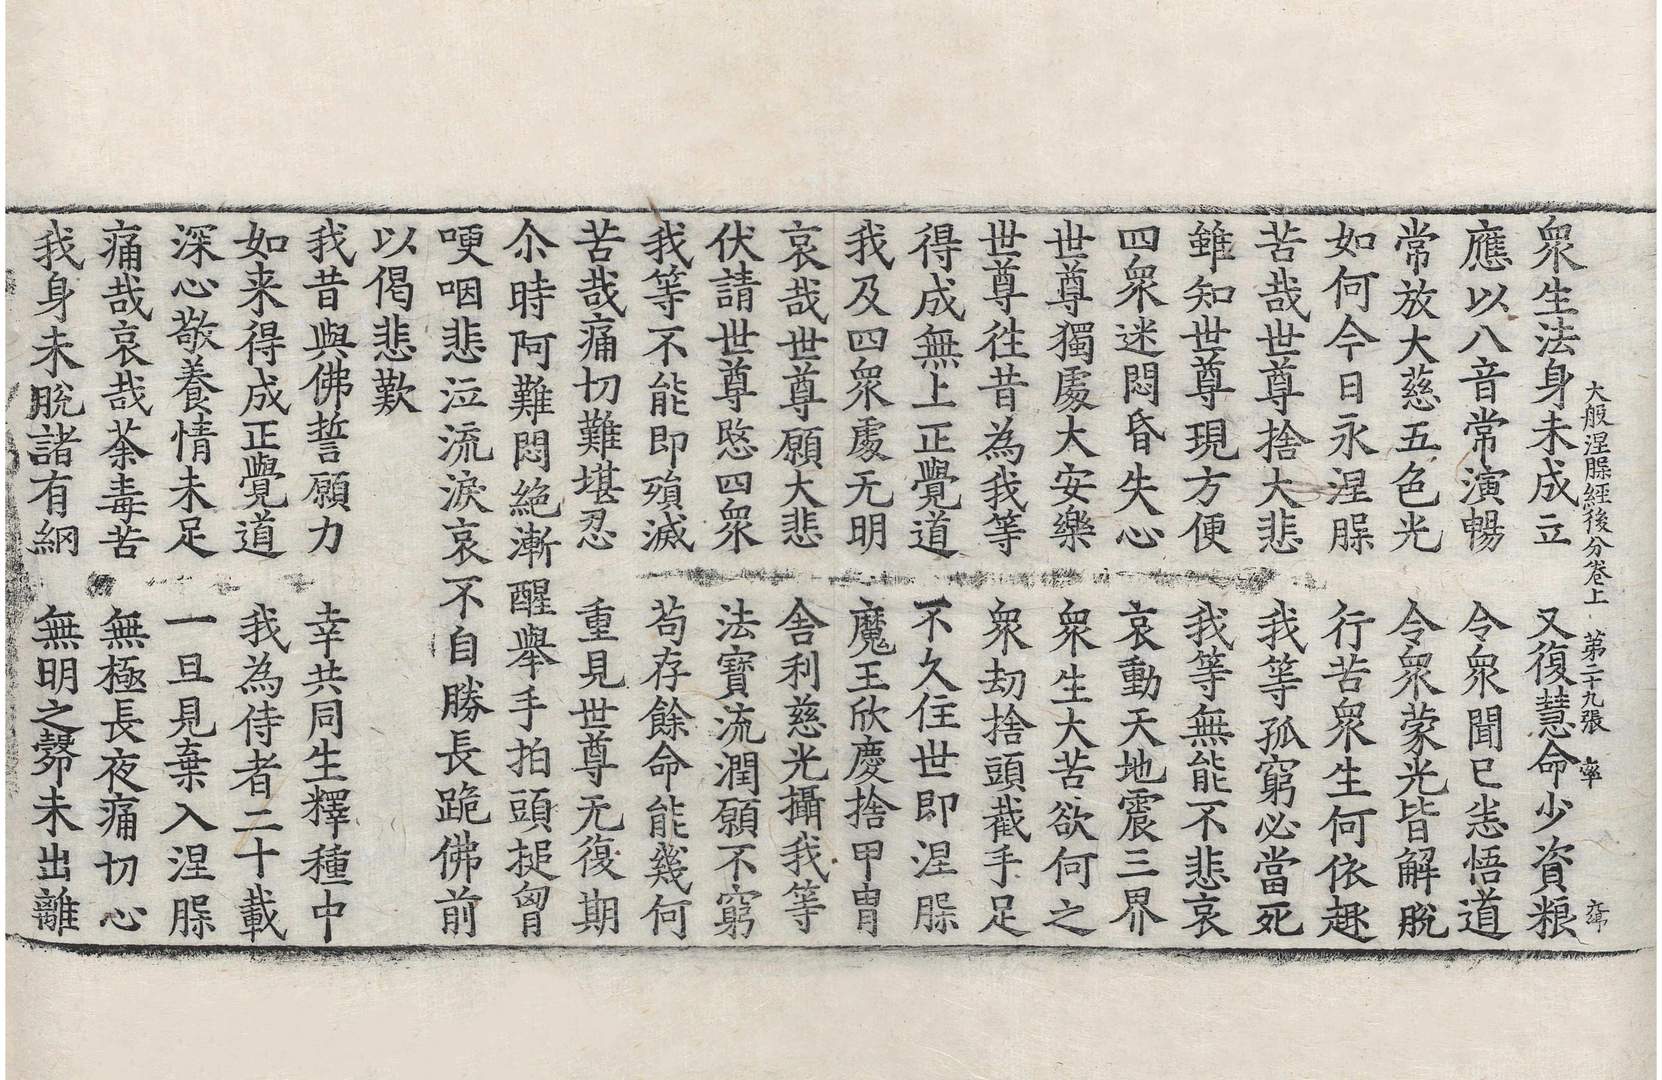 大般涅槃經後分卷上　第二十九張　率
衆生法身未成立　又復慧命少資粮
應以八音常演暢　令衆聞已悉悟道
常放大慈五色光　令衆蒙光皆解脫
如何今日永涅槃　行苦衆生何依趣
苦哉世尊捨大悲　我等孤窮必當死
雖知世尊現方便　我等無能不悲哀
四衆迷悶昏失心　哀動天地震三界
世尊獨處大安樂　衆生大苦欲何之
世尊往昔為我等　衆劫捨頭截手足
得成無上正覺道　不久住世即涅槃
我及四衆處无明　魔王欣慶捨甲冑
哀哉世尊願大悲　舍利慈光攝我等
伏請世尊愍四衆　法寶流潤願不窮
我等不能即殞滅　苟存餘命能幾何
苦哉痛切難堪忍　重見世尊无復期
尒時阿難悶絶漸醒舉手拍頭搥胷
哽咽悲泣流淚哀不自勝長跪佛前
以偈悲歎
我昔與佛誓願力　幸共同生釋種中
如来得成正覺道　我為侍者二十載
深心敬養情未足　一旦見棄入涅槃
痛哉哀哉荼毒苦　無極長夜痛切心
我身未脫諸有網　無明之㲉未出離